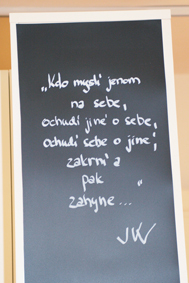 „Kdo myslí jenom
na sebe,
ochudí jiné o sebe,
ochudí sebe o jiné,
zakrní a
pak
zahyne..."
JW